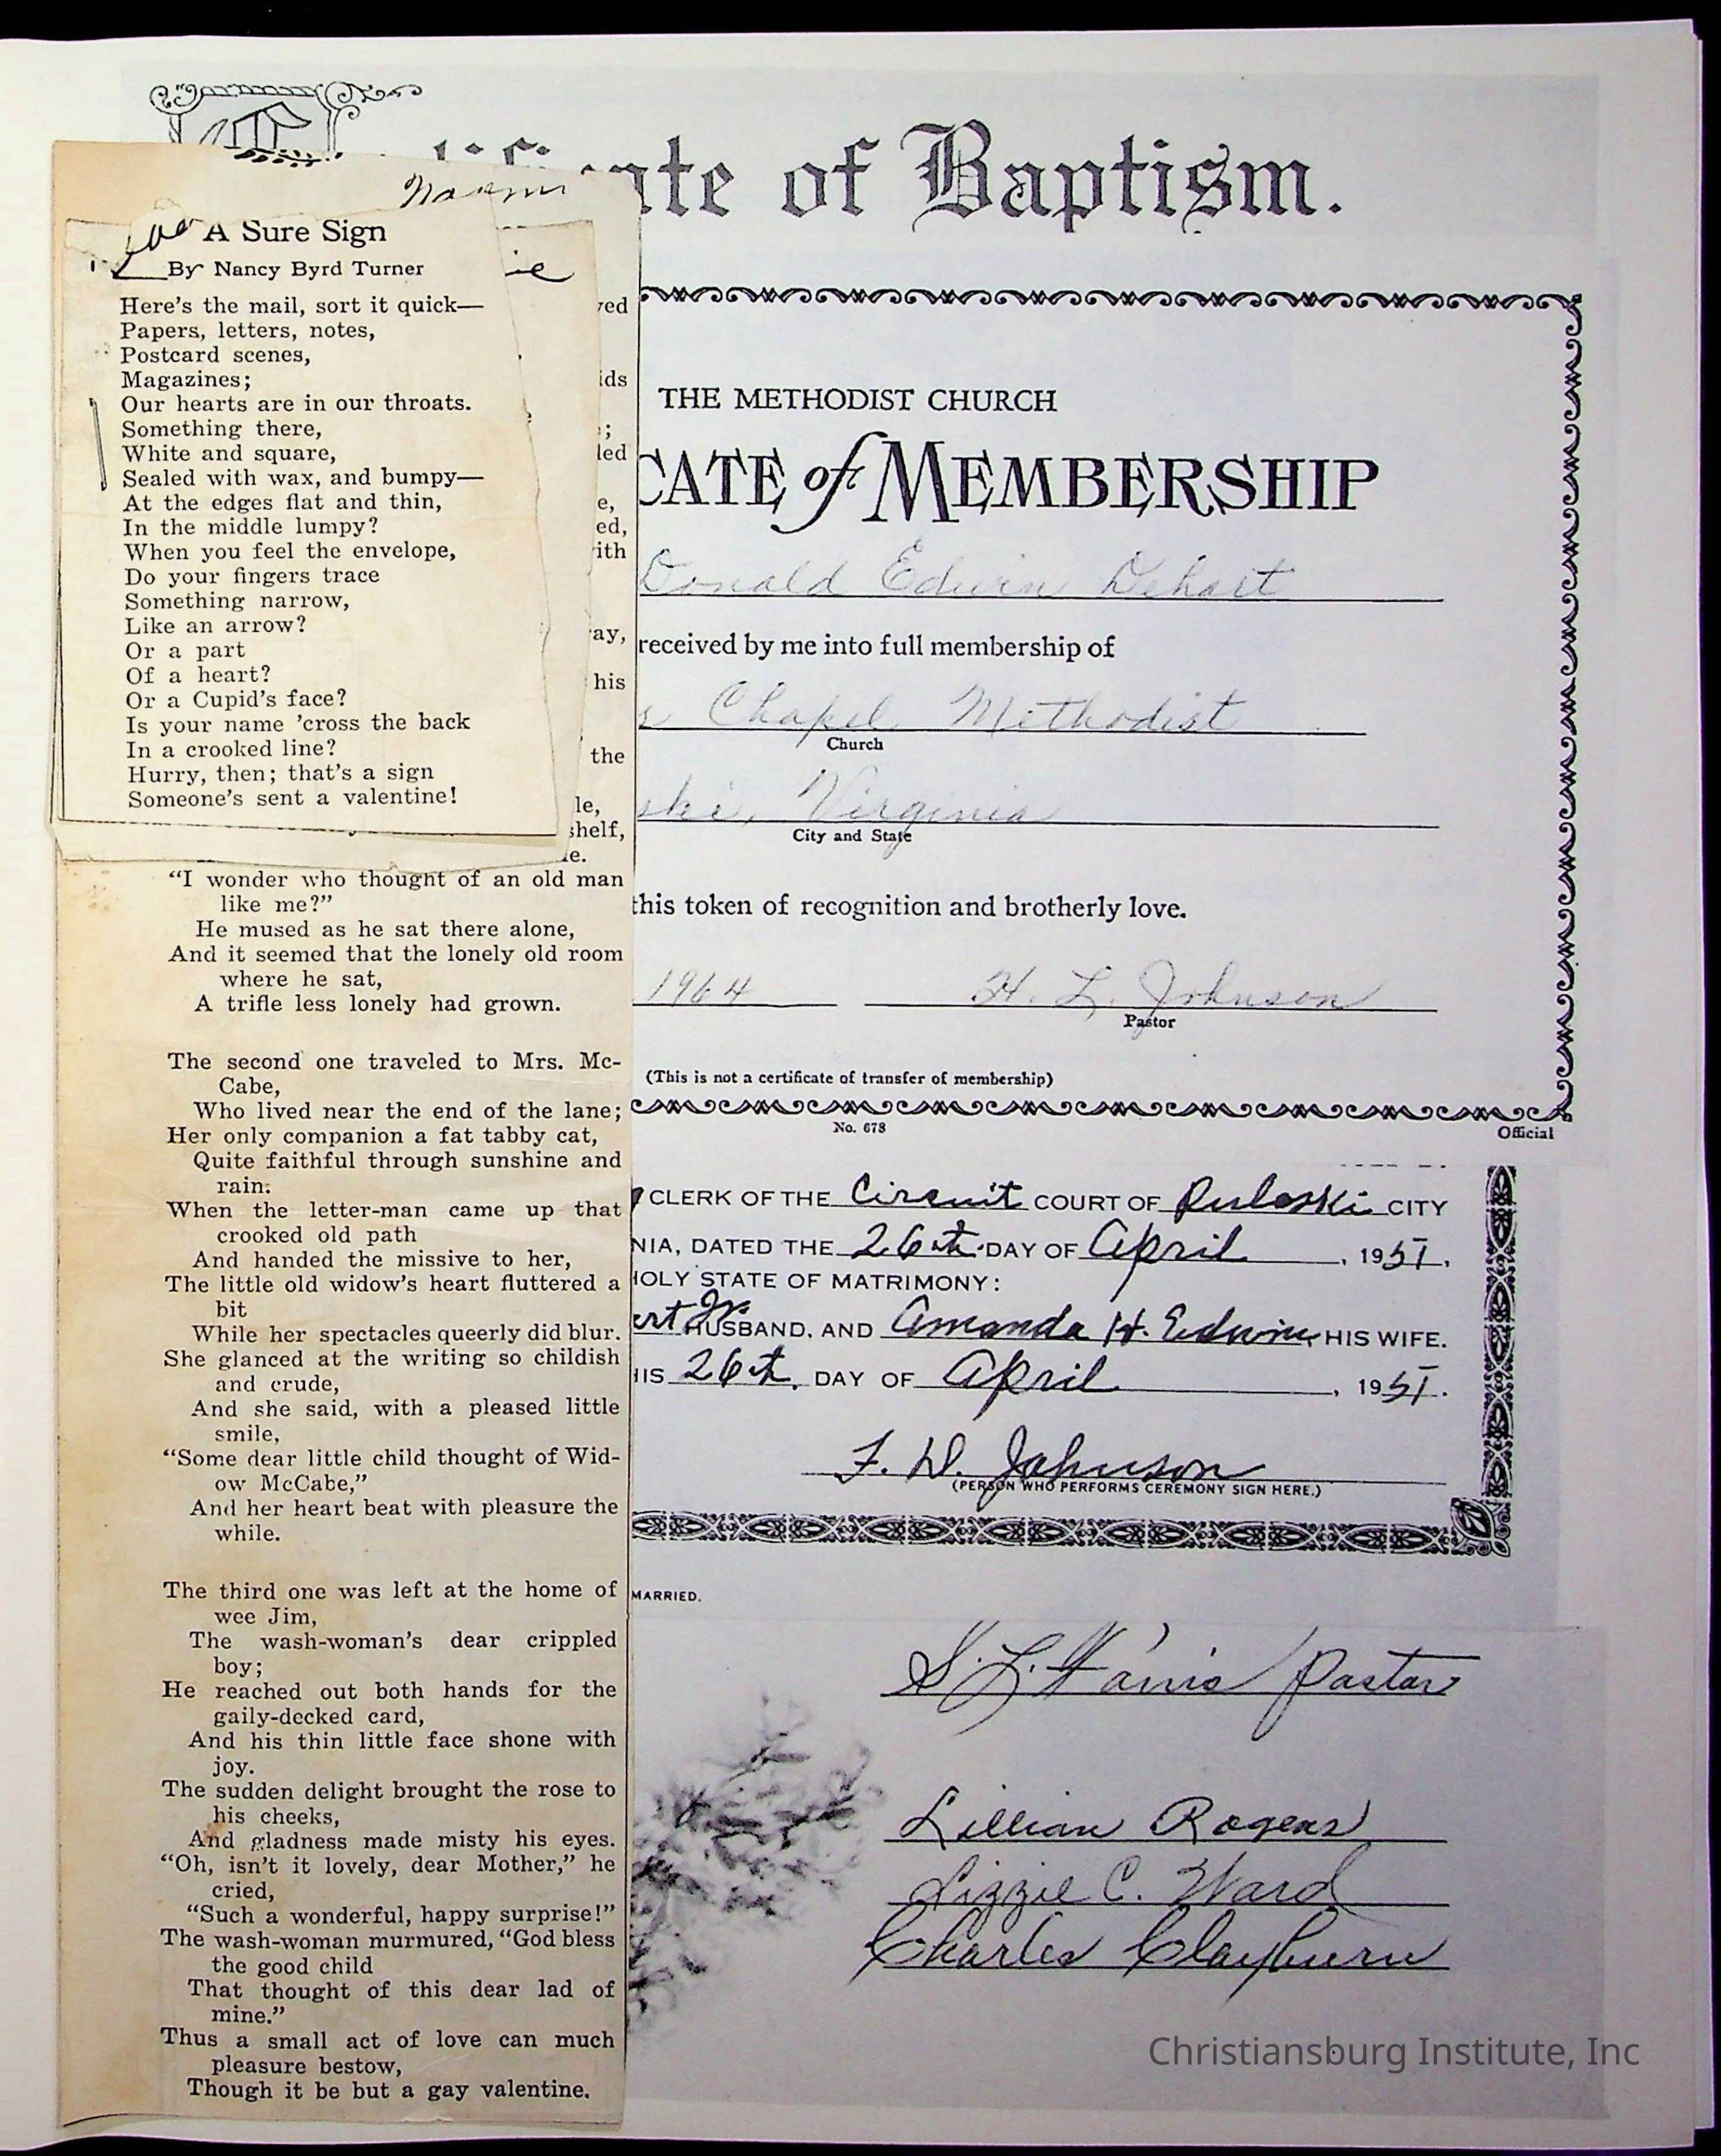 ate of Baptism.
A Sure Sign
By Nancy Byrd Turner
Here's the mail, sort it quick—
Papers, letters, notes,
Postcard scenes,
Magazines;
Our hearts are in our throats.
Something there,
White and square,
Sealed with wax, and bumpy—
At the edges flat and thin,
In the middle lumpy?
When you feel the envelope,
Do your fingers trace
Something narrow,
Like an arrow?
Or a part
Of a heart?
Or a Cupid's face?
Is your name 'cross the back
In a crooked line?
Hurry, then; that's a sign
Someone's sent a valentine!
ved
ids
;
led
e,
ed,
ith
ay,
his
the
le,
shelf,
le.
"I wonder who thought of an old man
like me?"
He mused as he sat there alone,
And it seemed that the lonely old room
where he sat,
A trifle less lonely had grown.
The second one traveled to Mrs. Mc-
Cabe,
Who lived near the end of the lane;
Her only companion a fat tabby cat,
Quite faithful through sunshine and
rain.
When the letter-man came up that
crooked old path
And handed the missive to her,
The little old widow's heart fluttered a
bit
While her spectacles queerly did blur.
She glanced at the writing so childish
and crude,
And she said, with a pleased little
smile,
"Some dear little child thought of Wid-
ow McCabe,"
And her heart beat with pleasure the
while.
The third one was left at the home of
wee Jim,
The wash-woman's dear crippled
boy;
He reached out both hands for the
gaily-decked card,
And his thin little face shone with
joy.
The sudden delight brought the rose to
his cheeks,
And gladness made misty his eyes.
"Oh, isn't it lovely, dear Mother," he
cried,
"Such a wonderful, happy surprise!"
The wash-woman murmured, "God bless
the good child
That thought of this dear lad of
mine."
Thus a small act of love can much
pleasure bestow,
Though it be but a gay valentine.
THE METHODIST CHURCH
CATE of MEMBERSHIP
Donald Edwin Dehart
received by me into full membership of
s Chapel Methodist
Church
ski, Virginia
City and State
this token of recognition and brotherly love.
1964 H. L. Johnson
Pastor
(This is not a certificate of transfer of membership)
No. 678
Official
CLERK OF THE Circuit COURT OF Pulaski CITY
NIA, DATED THE 26th DAY OF April, 1951.
HOLY STATE OF MATRIMONY:
ert Jr. HUSBAND, AND Amanda H. Edwins HIS WIFE.
IS 26th. DAY OF April, 1951.
F. D. Johnson
(PERSON WHO PERFORMS CEREMONY SIGN HERE.)
MARRIED.
Pastor
Lillian Rogers
Lizzie C. Ward
Charles Clayburn
Christiansburg Institute, Inc